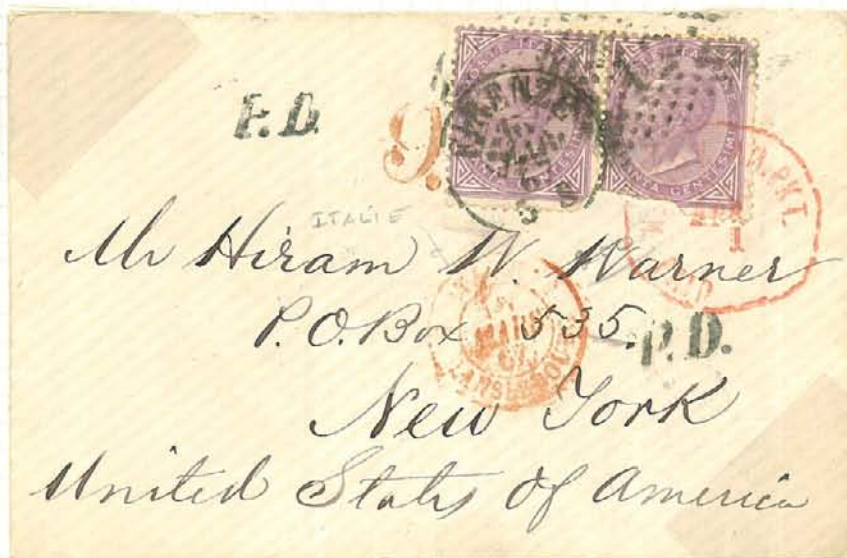 P.D.
9
FIRENZE
ITALIE
PKT.
1
Mr Hiram W. Warner
P.O. Box 535.
P.D.
MARS
New York
United States of America